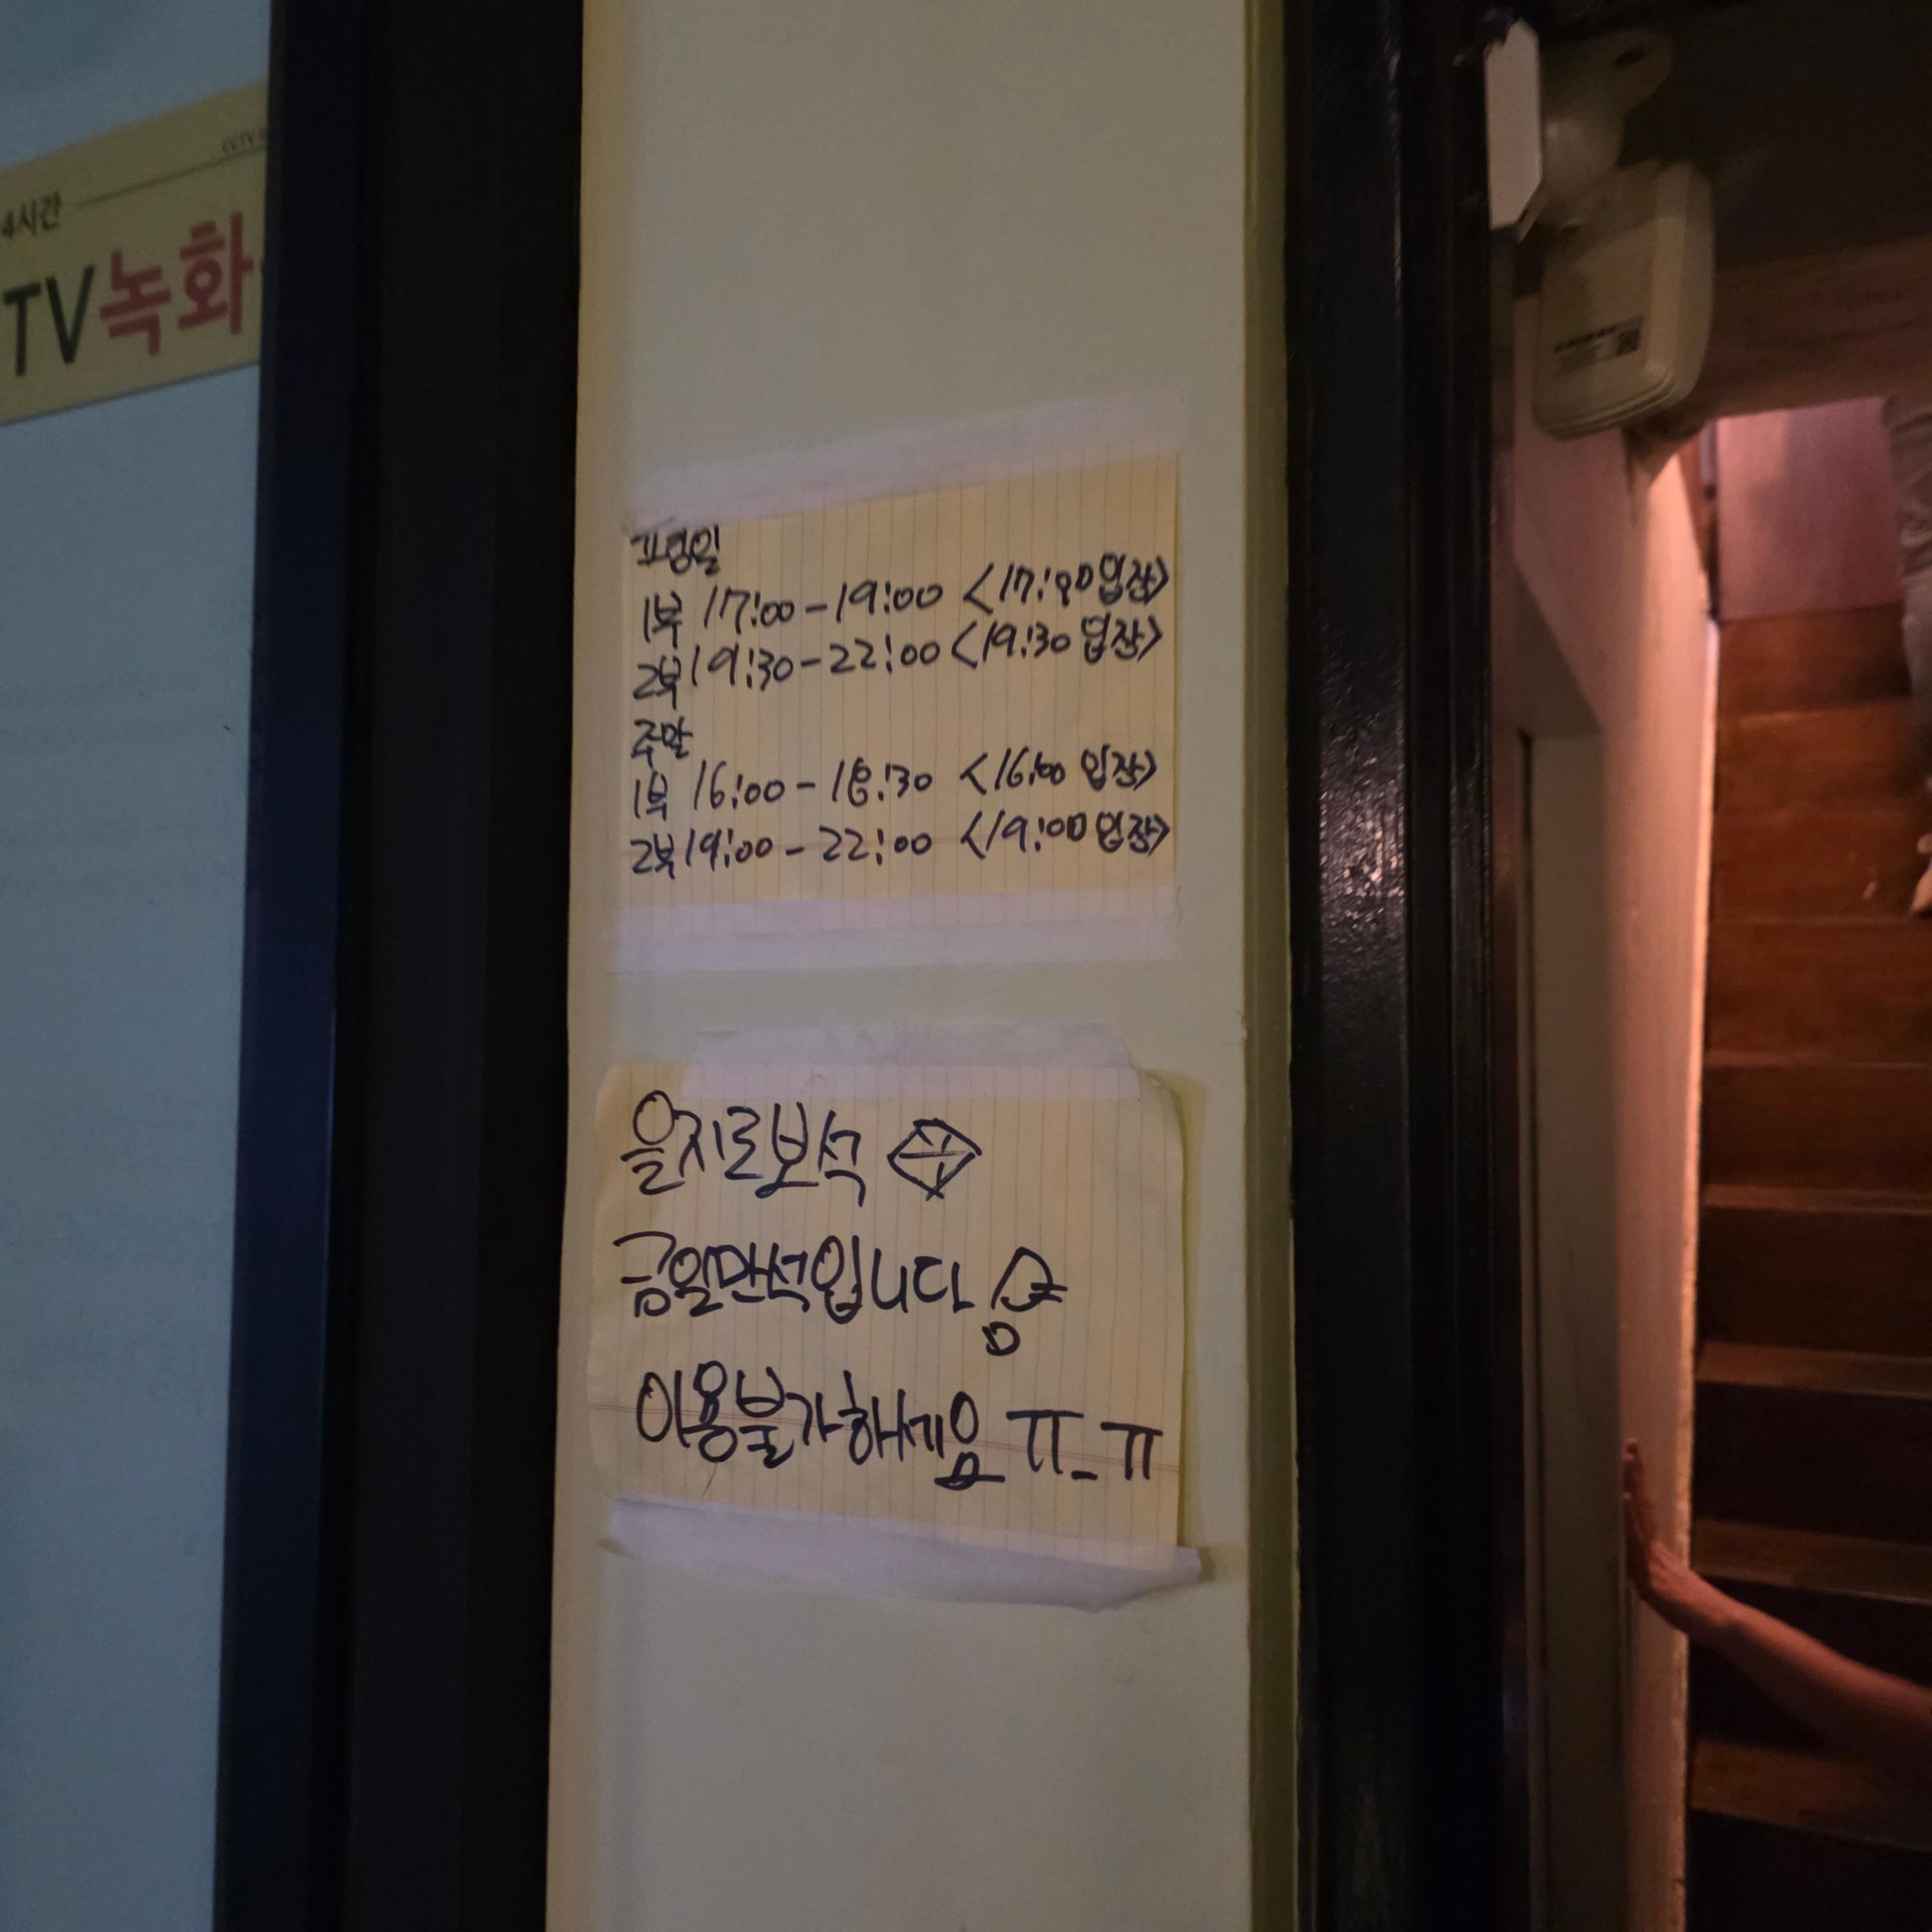 4시간
TV녹화
평일
1부 17:00-19:00 <17:00입장>
2부 19:30-22:00 <19:30 입장>
주말
1부 16:00-18:30 <16:00 입장>
2부 19:00-22:00 <19:00 입장>
을지로보석
금일만석입니다
이용불가하세요 ㅠ_ㅠ